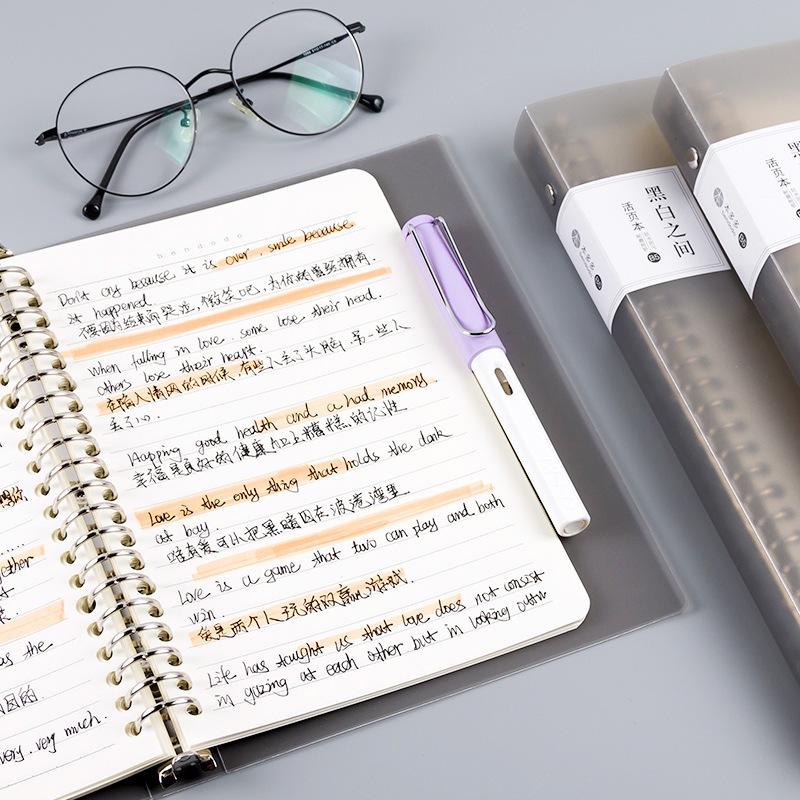 bendodo
Don't cry because it is over, smile because
it happened.
不要因为结束而哭泣，微笑吧，为你的曾经拥有.
When falling in love. some lose their head.
others lose their heart.
在陷入情网的时候，有些人丢了头脑，另一些人
丢了心.
Happing good health and a had memory.
幸福是良好的健康加上糟糕的记性
Love is the only thing that holds the dark
at bay.
唯有爱可以把黑暗囚在波港湾里
Love is a game that two can play and both
win.
爱是两个人玩的双赢游戏.
Life has staught us that love does not consist
in gazing at each other but in looking
ether
as the
very. very much.
黑白之间
活页本
B5
活页本
B5